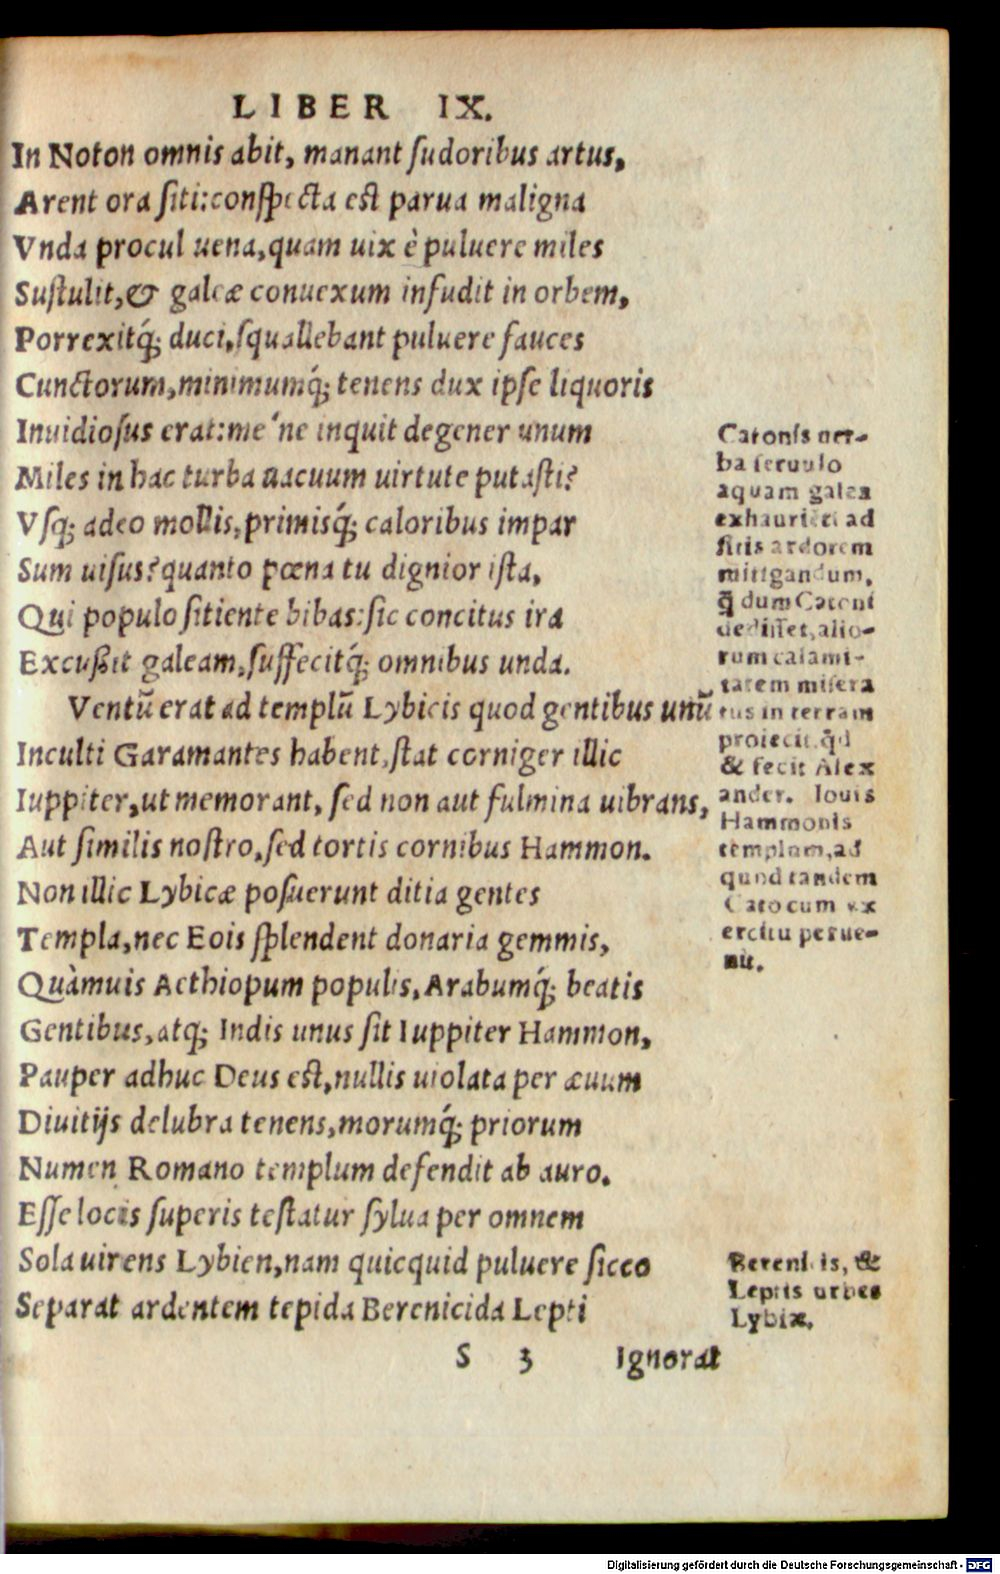 LIBER IX.
In Noton omnis abit, manant ſudoribus artus,
Arent ora ſiti:conſpecta eſt parua maligna
Vnda procul uena,quam uix è puluere miles
Suſtulit,& galeæ conuexum infudit in orbem,
Porrexitq́; duci,ſquallebant puluere fauces
Cunctorum,minimumq́; tenens dux ipſe liquoris
Inuidioſus erat:me'ne inquit degener unum
Miles in hac turba uacuum uirtute putaſti?
Vſq; adeo mollis,primisq́; caloribus impar
Sum uiſus?quanto pœna tu dignior iſta,
Qui populo ſitiente bibas:ſic concitus ira
Excußit galeam,ſuffecitq́; omnibus unda.
Ventũ erat ad templũ Lybicis quod gentibus unũ
Inculti Garamantes habent,ſtat corniger illic
Iuppiter,ut memorant, ſed non aut fulmina uibrans,
Aut ſimilis noſtro,ſed tortis cornibus Hammon.
Non illic Lybicæ poſuerunt ditia gentes
Templa,nec Eois ſplendent donaria gemmis,
Quàmuis Aethiopum populis,Arabumq́; beatis
Gentibus,atq; Indis unus ſit Iuppiter Hammon,
Pauper adhuc Deus eſt,nullis uiolata per æuum
Diuitijs delubra tenens,morumq́; priorum
Numen Romano templum defendit ab auro.
Eſſe locis ſuperis teſtatur ſylua per omnem
Sola uirens Lybien,nam quicquid puluere ſicco
Separat ardentem tepida Berenicida Lepti
S 3 Ignorat
Catonis uer-
ba ſeruulo
aquam galea
exhaurienti ad
ſitis ardorem
mitigandum,
q̃ dum Catoni
dediſſet,alio-
rum calami-
tatem miſera
tus in terram
proiecit.q̃d
& fecit Alex
ander. Iouis
Hammonis
templum,ad
quod tandem
Cato cum ex
ercitu perue-
nit.
Berenicis, &
Leptis urbes
Lybiæ.
Digitalisierung gefördert durch die Deutsche Forschungsgemeinschaft - DFG